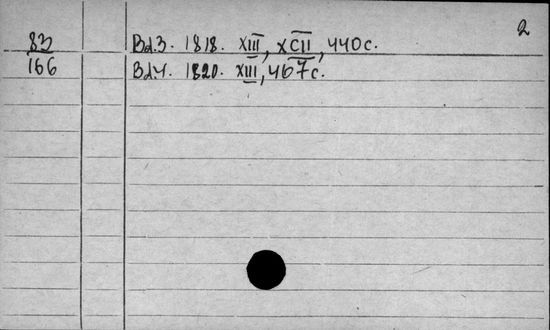 2
83 Bd.3. 1818. XIII, XCII, 440 с.
166 Bd.4. 1820. XIII, 467 с.